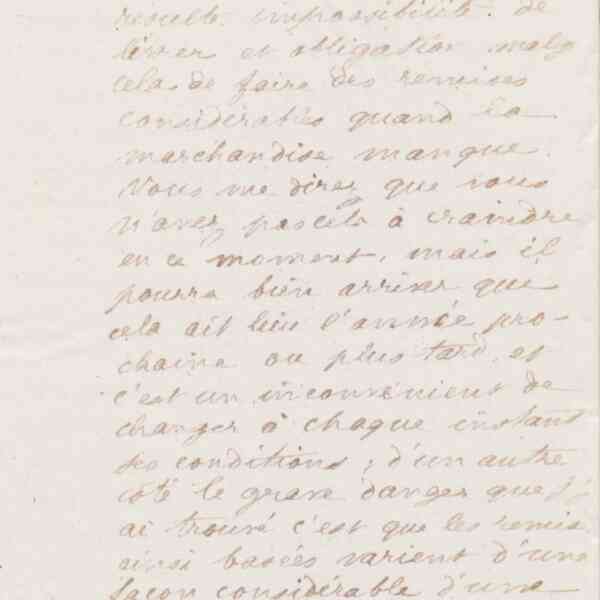 résulte impossibilité de
livrer et obligation malg
cela de faire des remises
considérables quand la
marchandise manque.
Vous me direz que vous
n'avez pas cela à craindre
en ce moment, mais il
pourra bien arriver que
cela ait lieu l'année pro-
chaine ou plus tard, et
c'est un inconvénient de
changer à chaque instant
ses conditions; d'un autre
côté le grave danger que j'y
ai trouvé c'est que les remis
ainsi basées varient d'une
façon considérable d'une